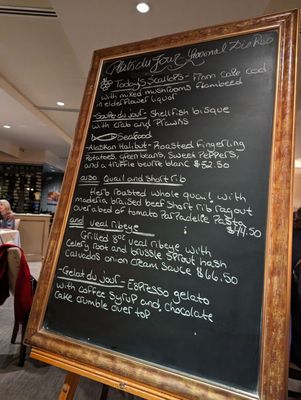 Plats du Jour
Today's Scallops - Finn Cake Cod
with mixed mushrooms Flambeed
in elderflower liquor
-Soupe du Jour- Shellfish bisque
with crab and Prawns
Seafood
-Alaskan Halibut- Roasted fingerling
Potatoes, green beans, Sweet Peppers,
and a truffle beurre blanc $52
Quail and short rib
Herb roasted whole quail with
maderia braised beef short rib ragout
over a bed of tomato Parpadelle Pasta
$44.50
and veal ribeye
Grilled 8oz veal ribeye with
Celery root and brussle sprout hash
Calvados onion Cream Sauce $66.50
-Gelat du jour- Espresso gelato
with coffee syrup and, chocolate
Cake crumble over top